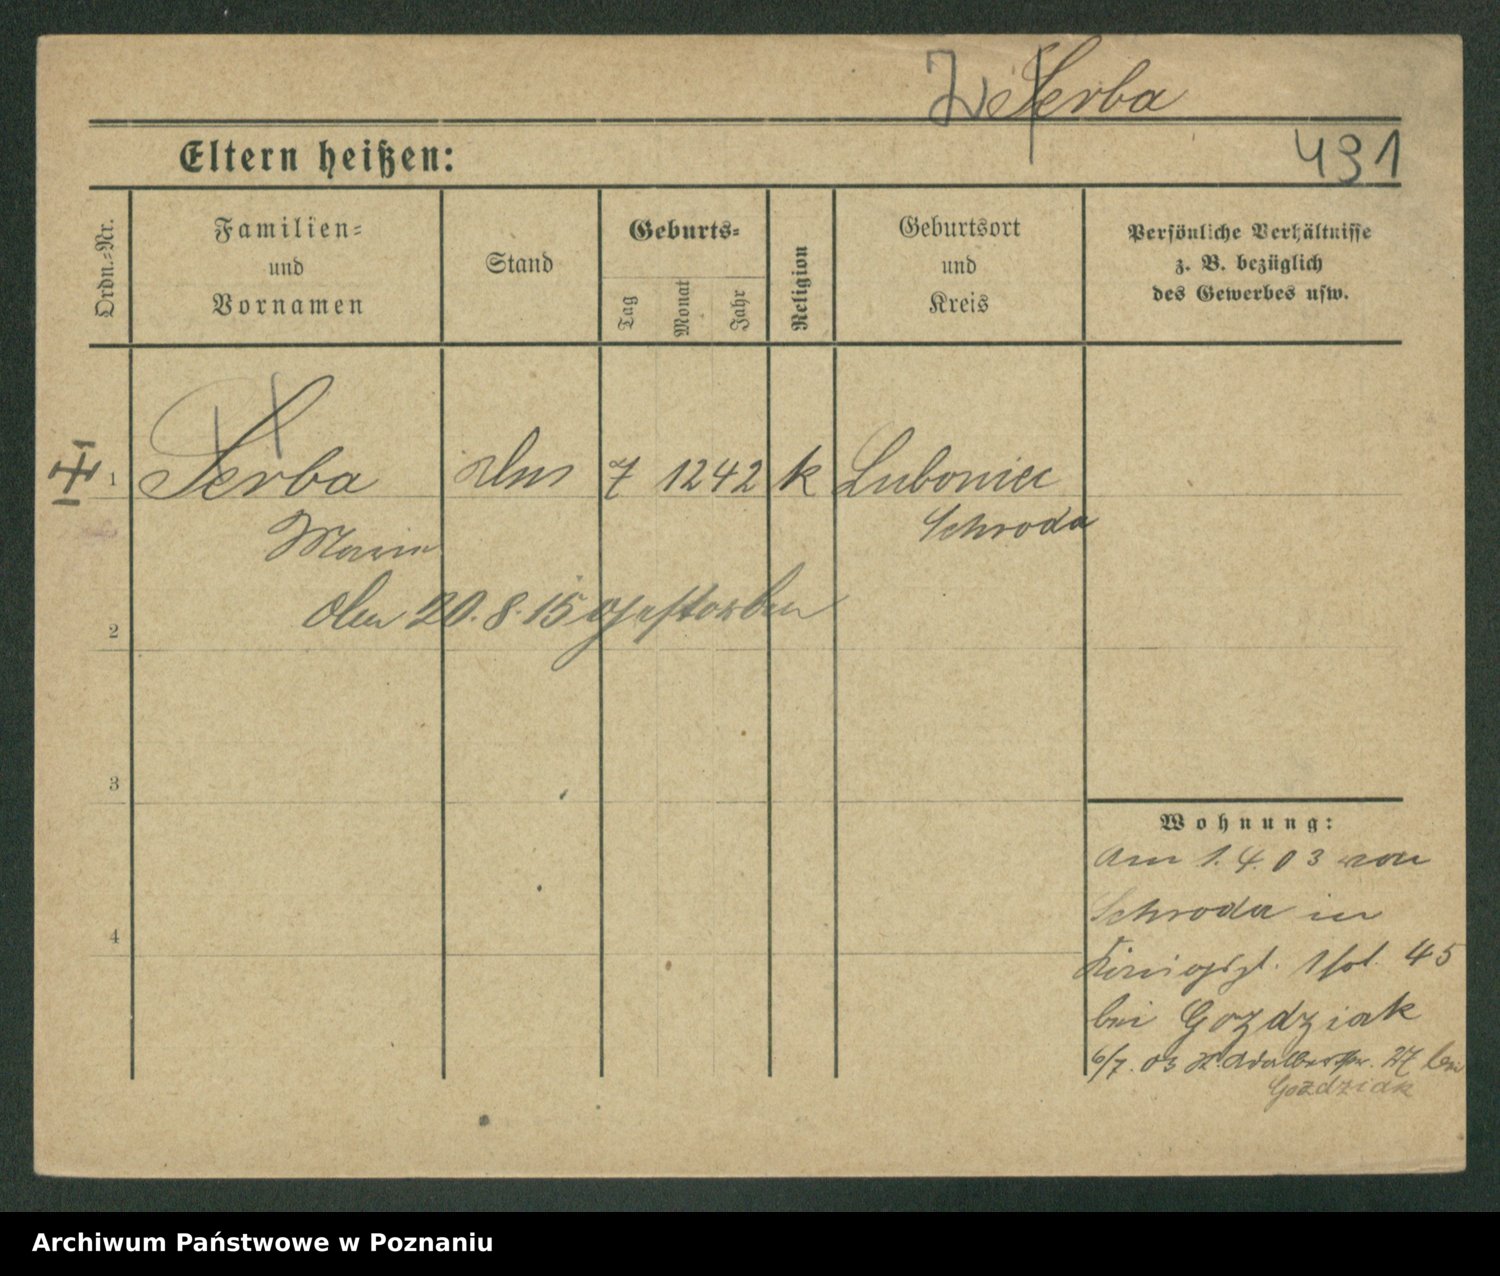 Serba
Eltern heißen:
431
Ordn.=Nr.
Familien=
und
Vornamen
Stand
Geburts=
Tag
Monat
Jahr
Religion
Geburtsort
und
Kreis
Persönliche Verhältnisse
z. B. bezüglich
des Gewerbes usw.
1
Serba
7 12 42 k
Schroda
Maria
2
20.8.15 gestorben
3
4
Wohnung:
Am 1.4.03 von
Schroda in
45
bei Gozdziak
6/7.03 27 bei
Gozdziak
Archiwum Państwowe w Poznaniu